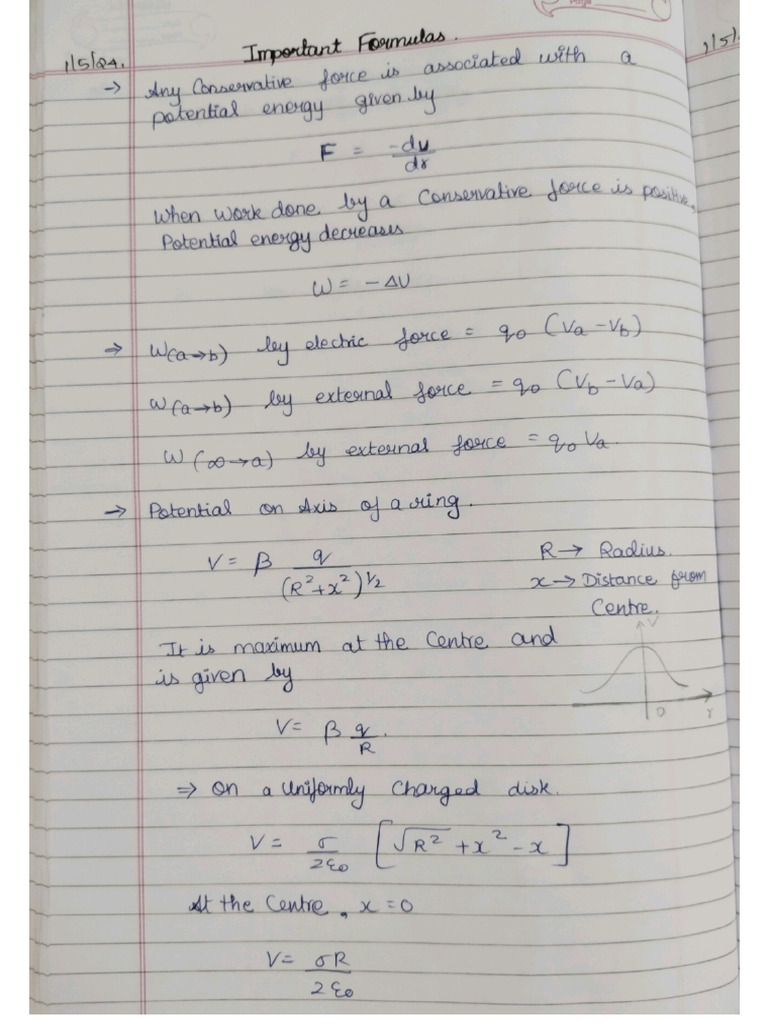 1/5/24.
Important Formulas.
1/5/
→ Any Conservative force is associated with a
potential energy given by
F = -dU/dr
When work done by a Conservative force is positive,
Potential energy decreases
W = -ΔU
→ W(a→b) by electric force = q₀ (Va - Vb)
W(a→b) by external force = q₀ (Vb - Va)
W(∞→a) by external force = q₀ Va.
→ Potential on Axis of a ring.
V = β q/(R²+x²)^1/2
R → Radius.
x → Distance from
Centre.
It is maximum at the Centre and
is given by
V
O
r
V = β q/R.
⇒ On a Uniformly Charged disk.
V = σ/2ε₀ [√R² + x² - x]
At the Centre, x = 0
V = σR/2ε₀